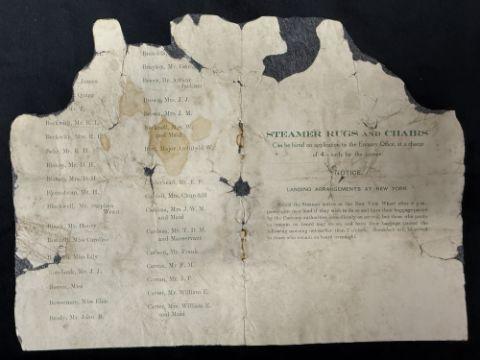 James
Quigg
Beckwith, Mr. R. L.
Beckwith, Mrs. R. L.
Behr, Mr. K. H.
Bishop, Mr. D. H.
Bishop, Mrs. D. H.
Bjornstrom, Mr. H.
Blackwell, Mr. Stephen
Weart
Blank, Mr. Henry
Bonnell, Miss Caroline
Miss Lily
Borebank, Mr. J. J.
Bowen, Miss
Bowerman, Miss Elsie
Brady, Mr. John B.
Brandeis,
Brayton, Mr. Geo.
Brewe, Dr. Arthur
Jackson
Brown, Mrs. J. J.
Brown, Mrs. J. M.
Bucknell, Mrs. W.
and Maid
Butt, Major Archibald W.
Mr. E. P.
Mrs. Churchill
Cardeza, Mrs. J. W. M.
and Maid
Cardeza, Mr. T. D. M.
and Manservant
Carlson, Mr. Frank
Carran, Mr. F. M.
Carran, Mr. J. P.
Carter, Mr. William E.
Carter, Mrs. William E.
and Maid
STEAMER RUGS AND CHAIRS
Can be hired on application to the Enquiry Office, at a charge
of 4s. each for the voyage
NOTICE.
LANDING ARRANGEMENTS AT NEW YORK
Should the Steamer arrive at the New York Wharf after 8 p.m.
passengers may land if they wish to do so and have their baggage passed
by the Customs authorities immediately on arrival, but those who prefer
to remain on board may do so and have their baggage passed the
following morning not earlier than 7 o'clock. Breakfast will be served
to those who remain on board overnight.